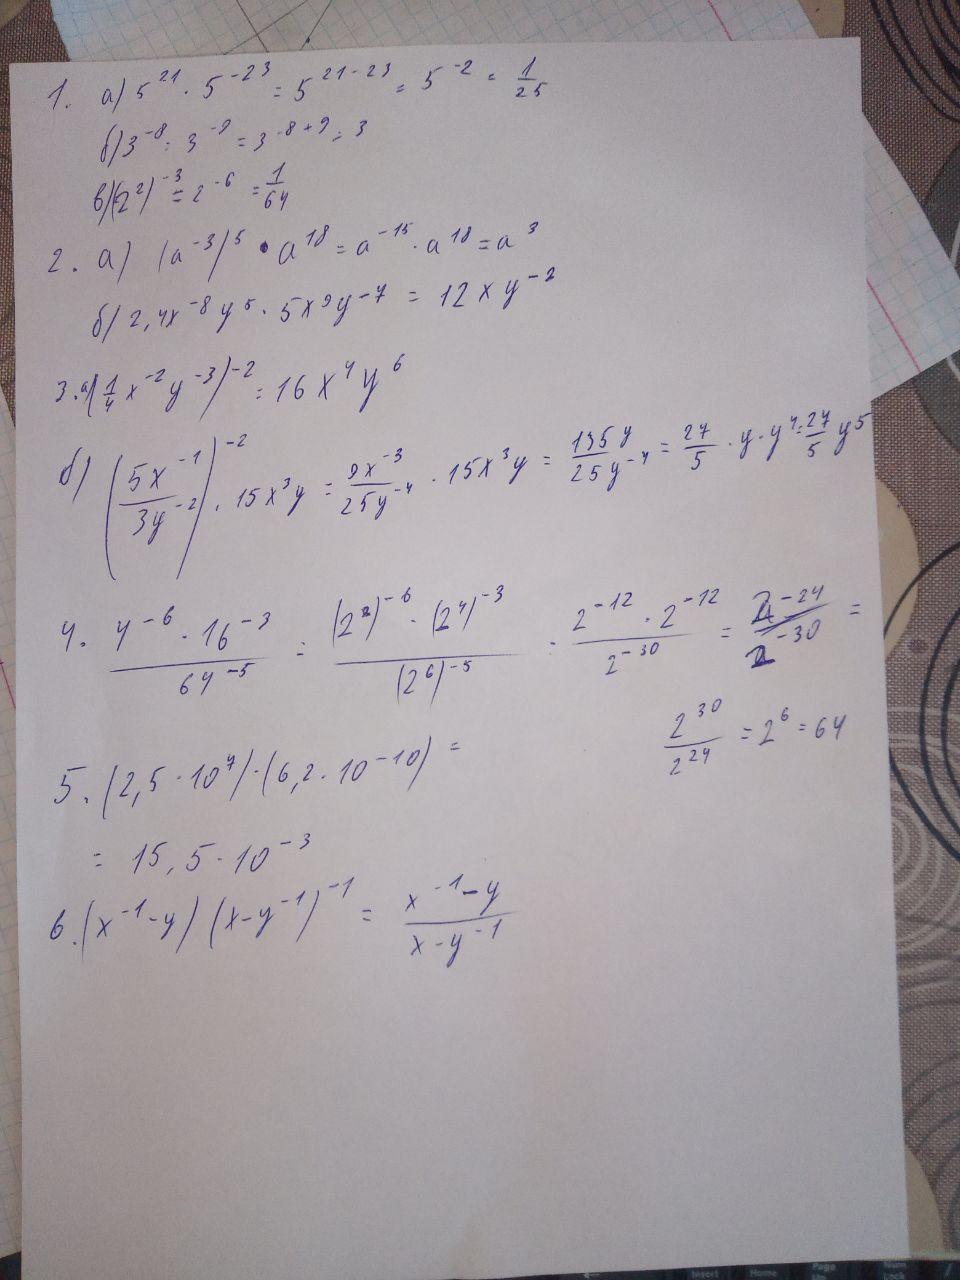 1. а) 5^21 · 5^-23 = 5^21-23 = 5^-2 = 1/25
б) 3^-8 : 3^-9 = 3^-8+9 = 3
в) (2^2)^-3 = 2^-6 = 1/64
2. а) (a^-3)^5 · a^18 = a^-15 · a^18 = a^3
б) 2,4x^-8 y^5 · 5x^9 y^-7 = 12xy^-2
3. а) (1/4 x^-2 y^-3)^-2 = 16x^4 y^6
б) (5x^-1/3y^-2)^-2 · 15x^3 y = 9x^-3/25y^-4 · 15x^3 y = 135y/25y^-4 = 27/5 · y · y^4 = 27/5 y^5
4. 4^-6 · 16^-3/64^-5 = (2^2)^-6 · (2^4)^-3/(2^6)^-5 = 2^-12 · 2^-12/2^-30 = 2^-24/2^-30 =
2^30/2^24 = 2^6 = 64
5. (2,5 · 10^7) · (6,2 · 10^-10) =
= 15,5 · 10^-3
6. (x^-1 - y) (x - y^-1)^-1 = x^-1 - y/x - y^-1
Insert
Home
Page
Num